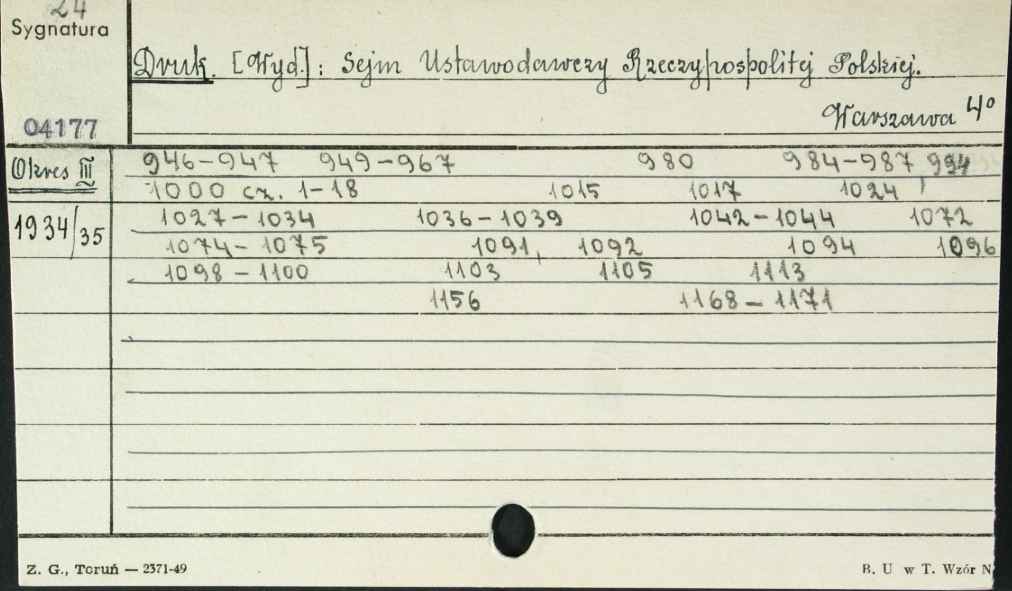 24
Sygnatura
Druk. [Wyd.]: Sejm Ustawodawczy Rzeczypospolitej Polskiej.
04177
Warszawa 4°
Okres III
946-947 949-967 980 984-987, 994
1000 cz. 1-18 1015 1017 1024
1934/35
1027-1034 1036-1039 1042-1044 1072
1074-1075 1091, 1092 1094 1096
1098-1100 1103 1105 1113
1156 1168-1171
Z. G., Toruń — 2371-49
B. U w T. Wzór N